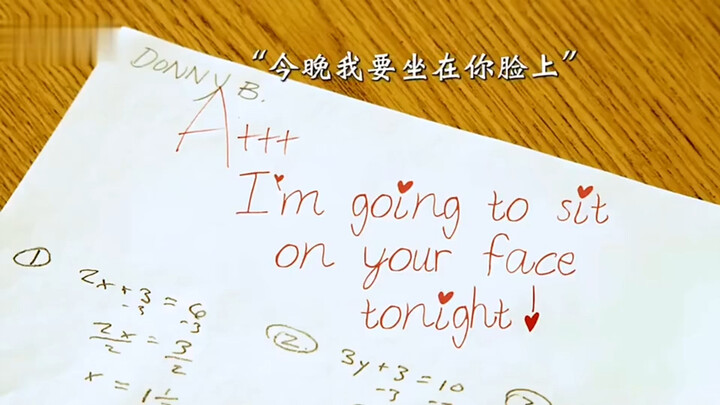 “今晚我要坐在你脸上”
DONNY B.
A+++
I'm going to sit
on your face
tonight!
①
2x+3=6
-3 -3
2x/2 = 3/2
x = 1
②
3y+3=10
-3